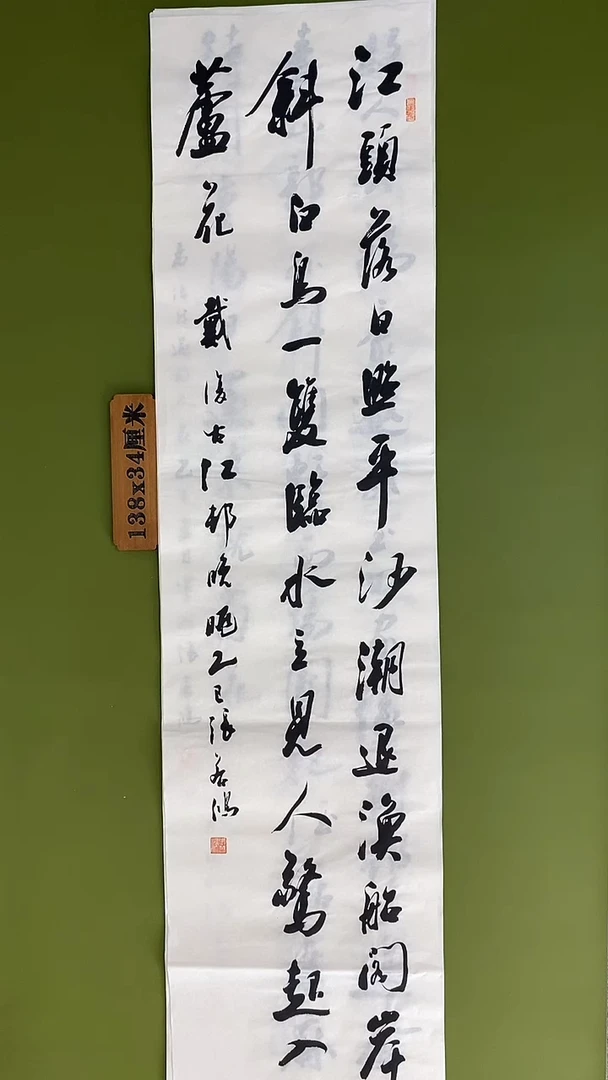 江頭落日照平沙潮退漁船閣岸
斜白鳥一雙臨水立見人驚起入
蘆花 戴復古江村晚眺乙巳張若鴻
138x34厘米